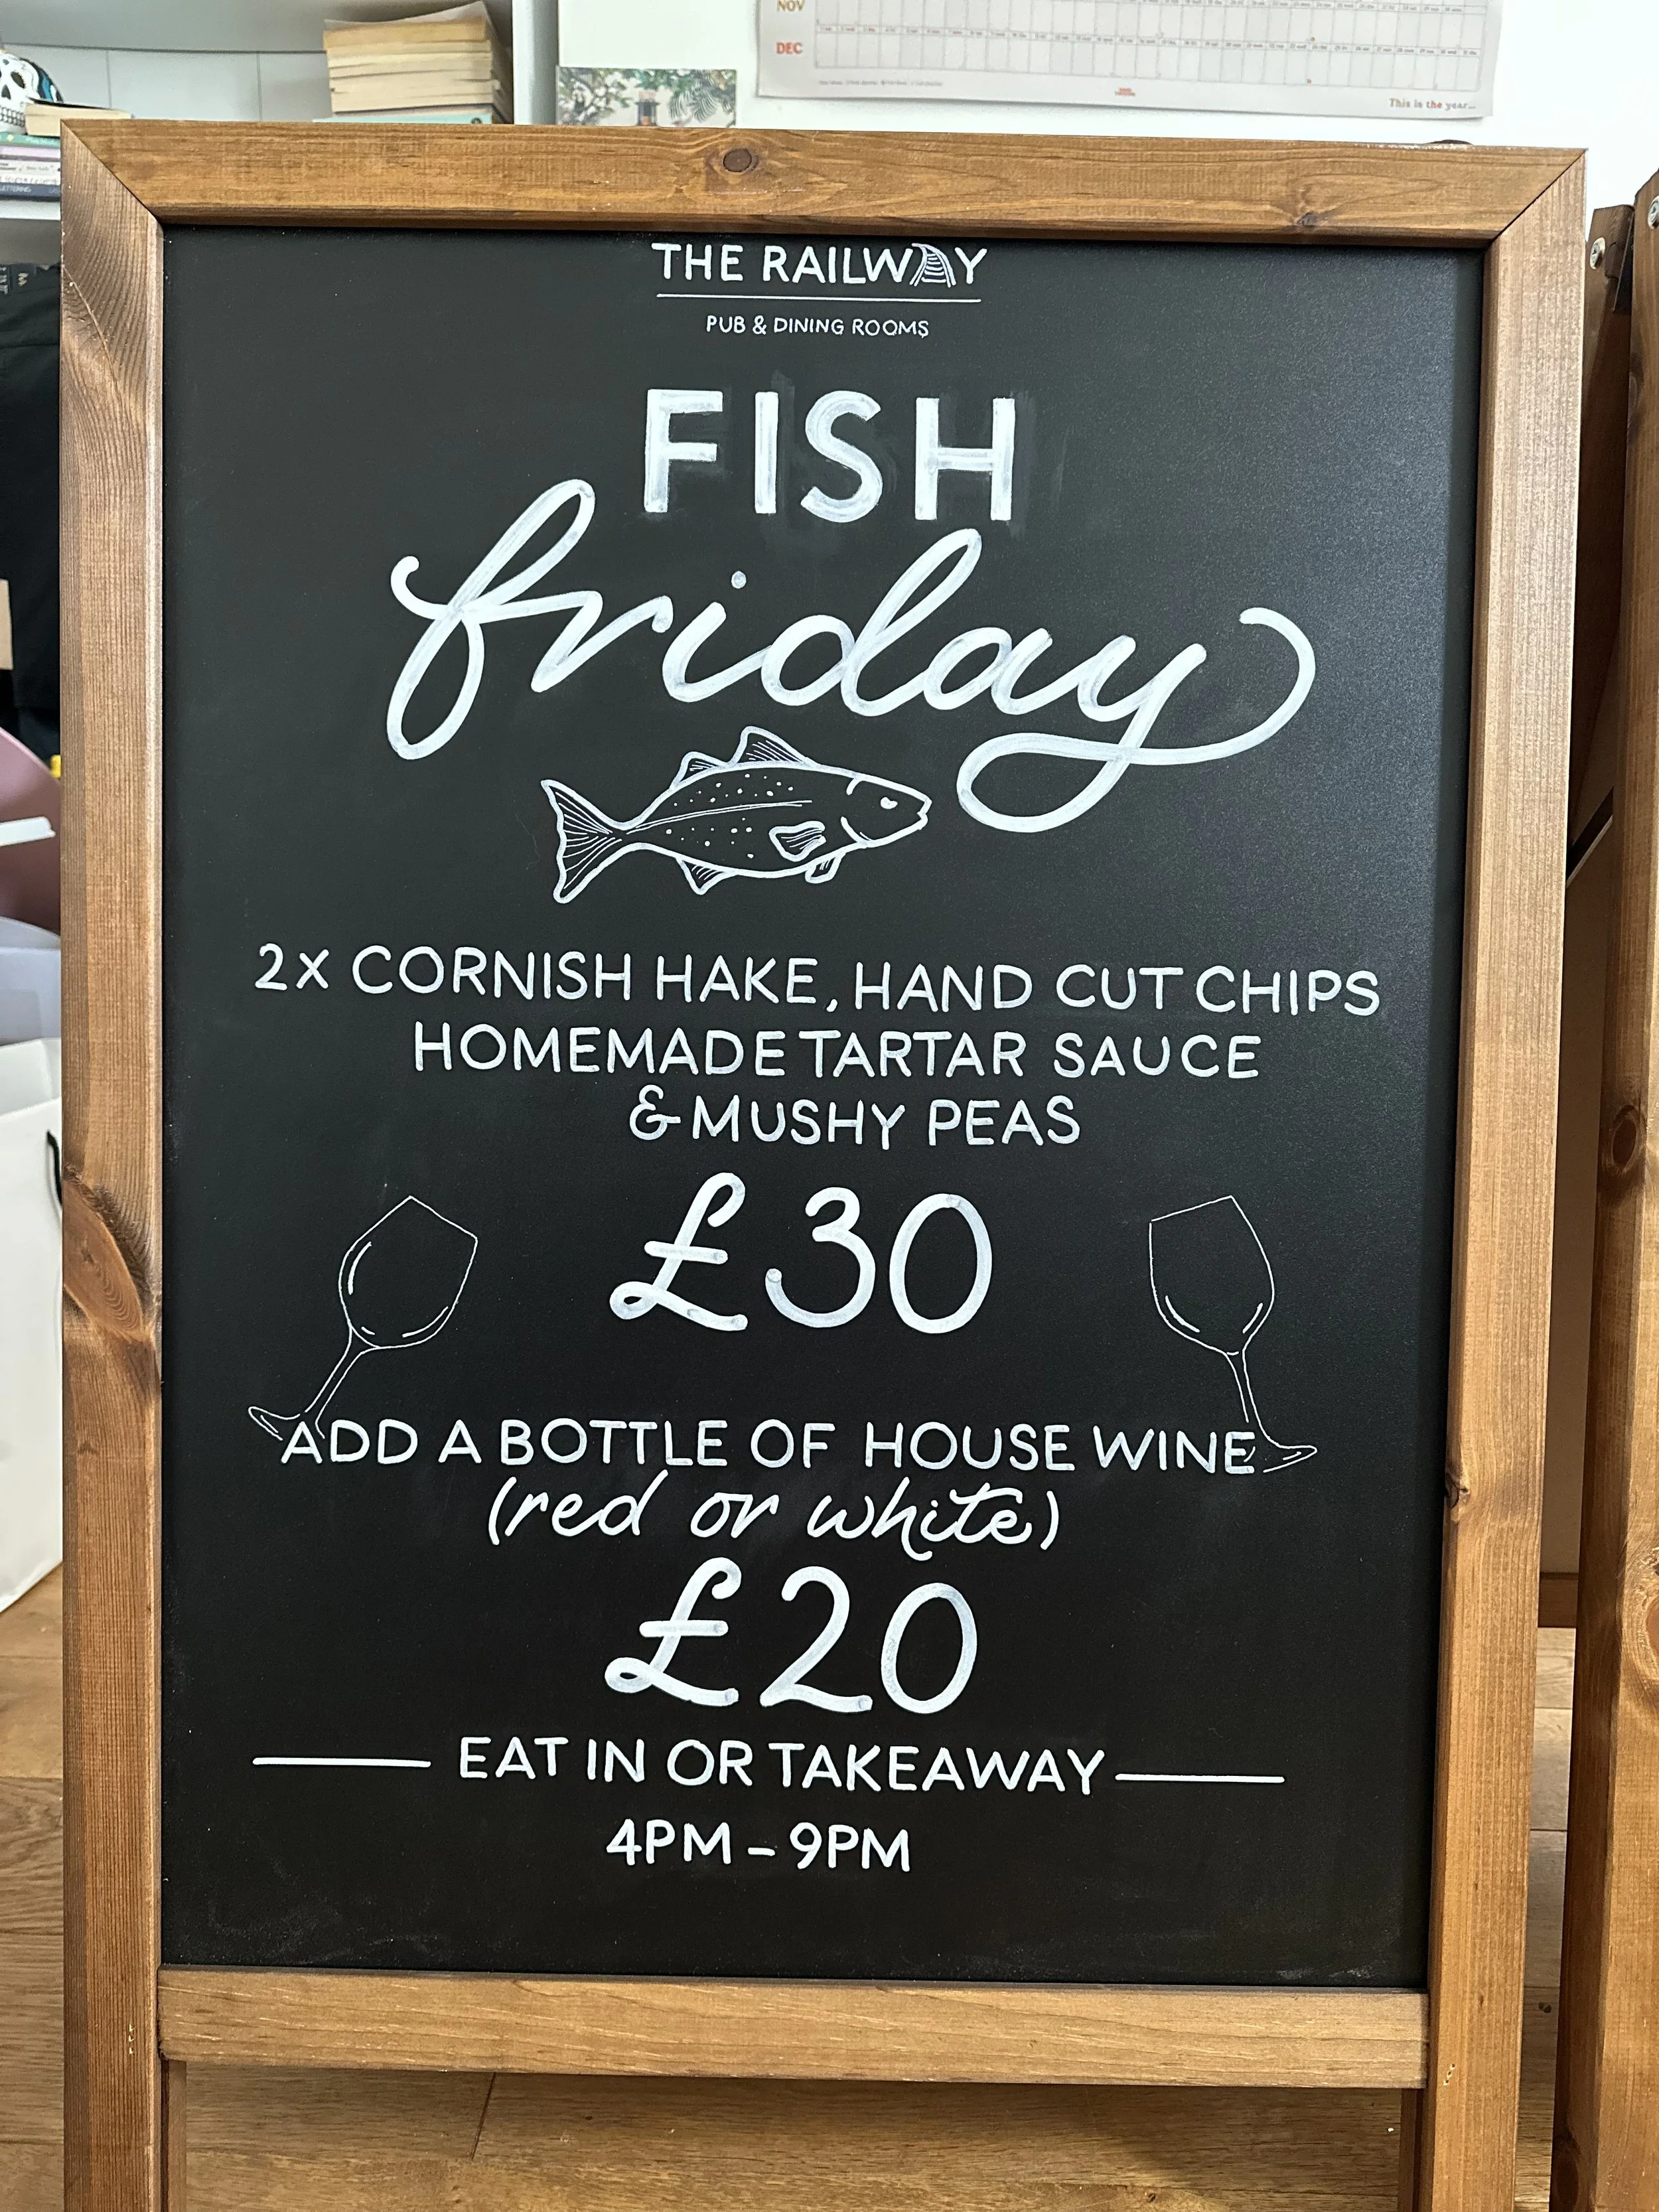 NOV
DEC
This is the year...
LETTERING
THE RAILWAY
PUB & DINING ROOMS
FISH
friday
2X CORNISH HAKE, HAND CUT CHIPS
HOMEMADE TARTAR SAUCE
& MUSHY PEAS
£30
ADD A BOTTLE OF HOUSE WINE
(red or white)
£20
EAT IN OR TAKEAWAY
4PM - 9PM